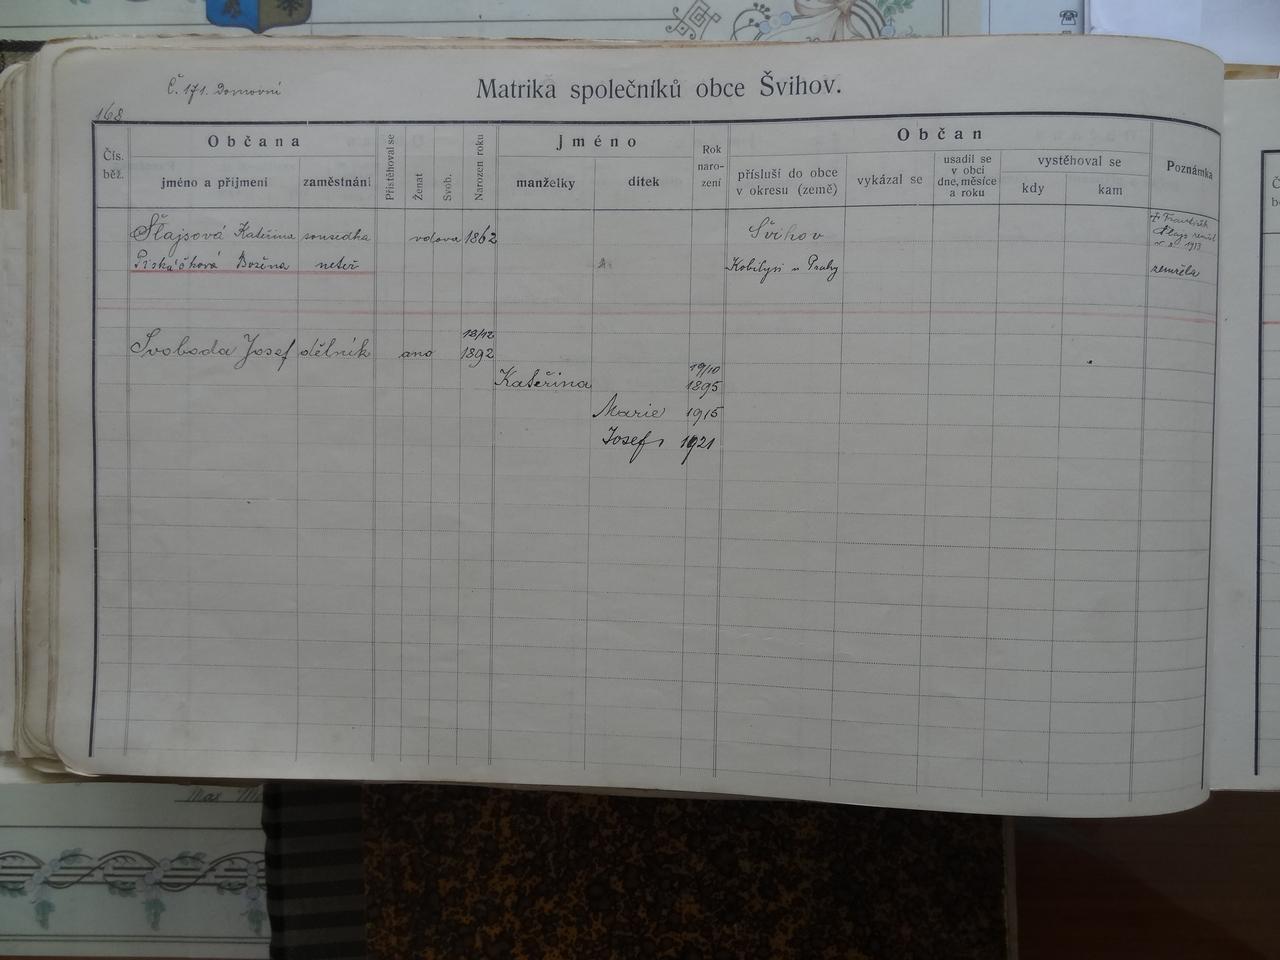 Č. 171. Domovní
Matrika společníků obce Švihov.
168
Čís. běž.
Občana
jméno a příjmení
zaměstnání
Přistěhoval se
Ženat
Svob.
Narozen roku
Jméno
manželky
dítek
Rok naro- zení
Občan
přísluší do obce v okresu (země)
vykázal se
usadil se v obci dne, měsíce a roku
vystěhoval se
kdy
kam
Poznámka
Šlajsová Kateřina sousedka vdova 1862 Švihov
† František Šlajs zemřel 1913
Piskáčková Božena neteř Kobilysi u Prahy zemřela
Svoboda Josef dělník ano 13/12 1892
Kateřina 19/10 1895
Marie 1915
Josef 1921
Max